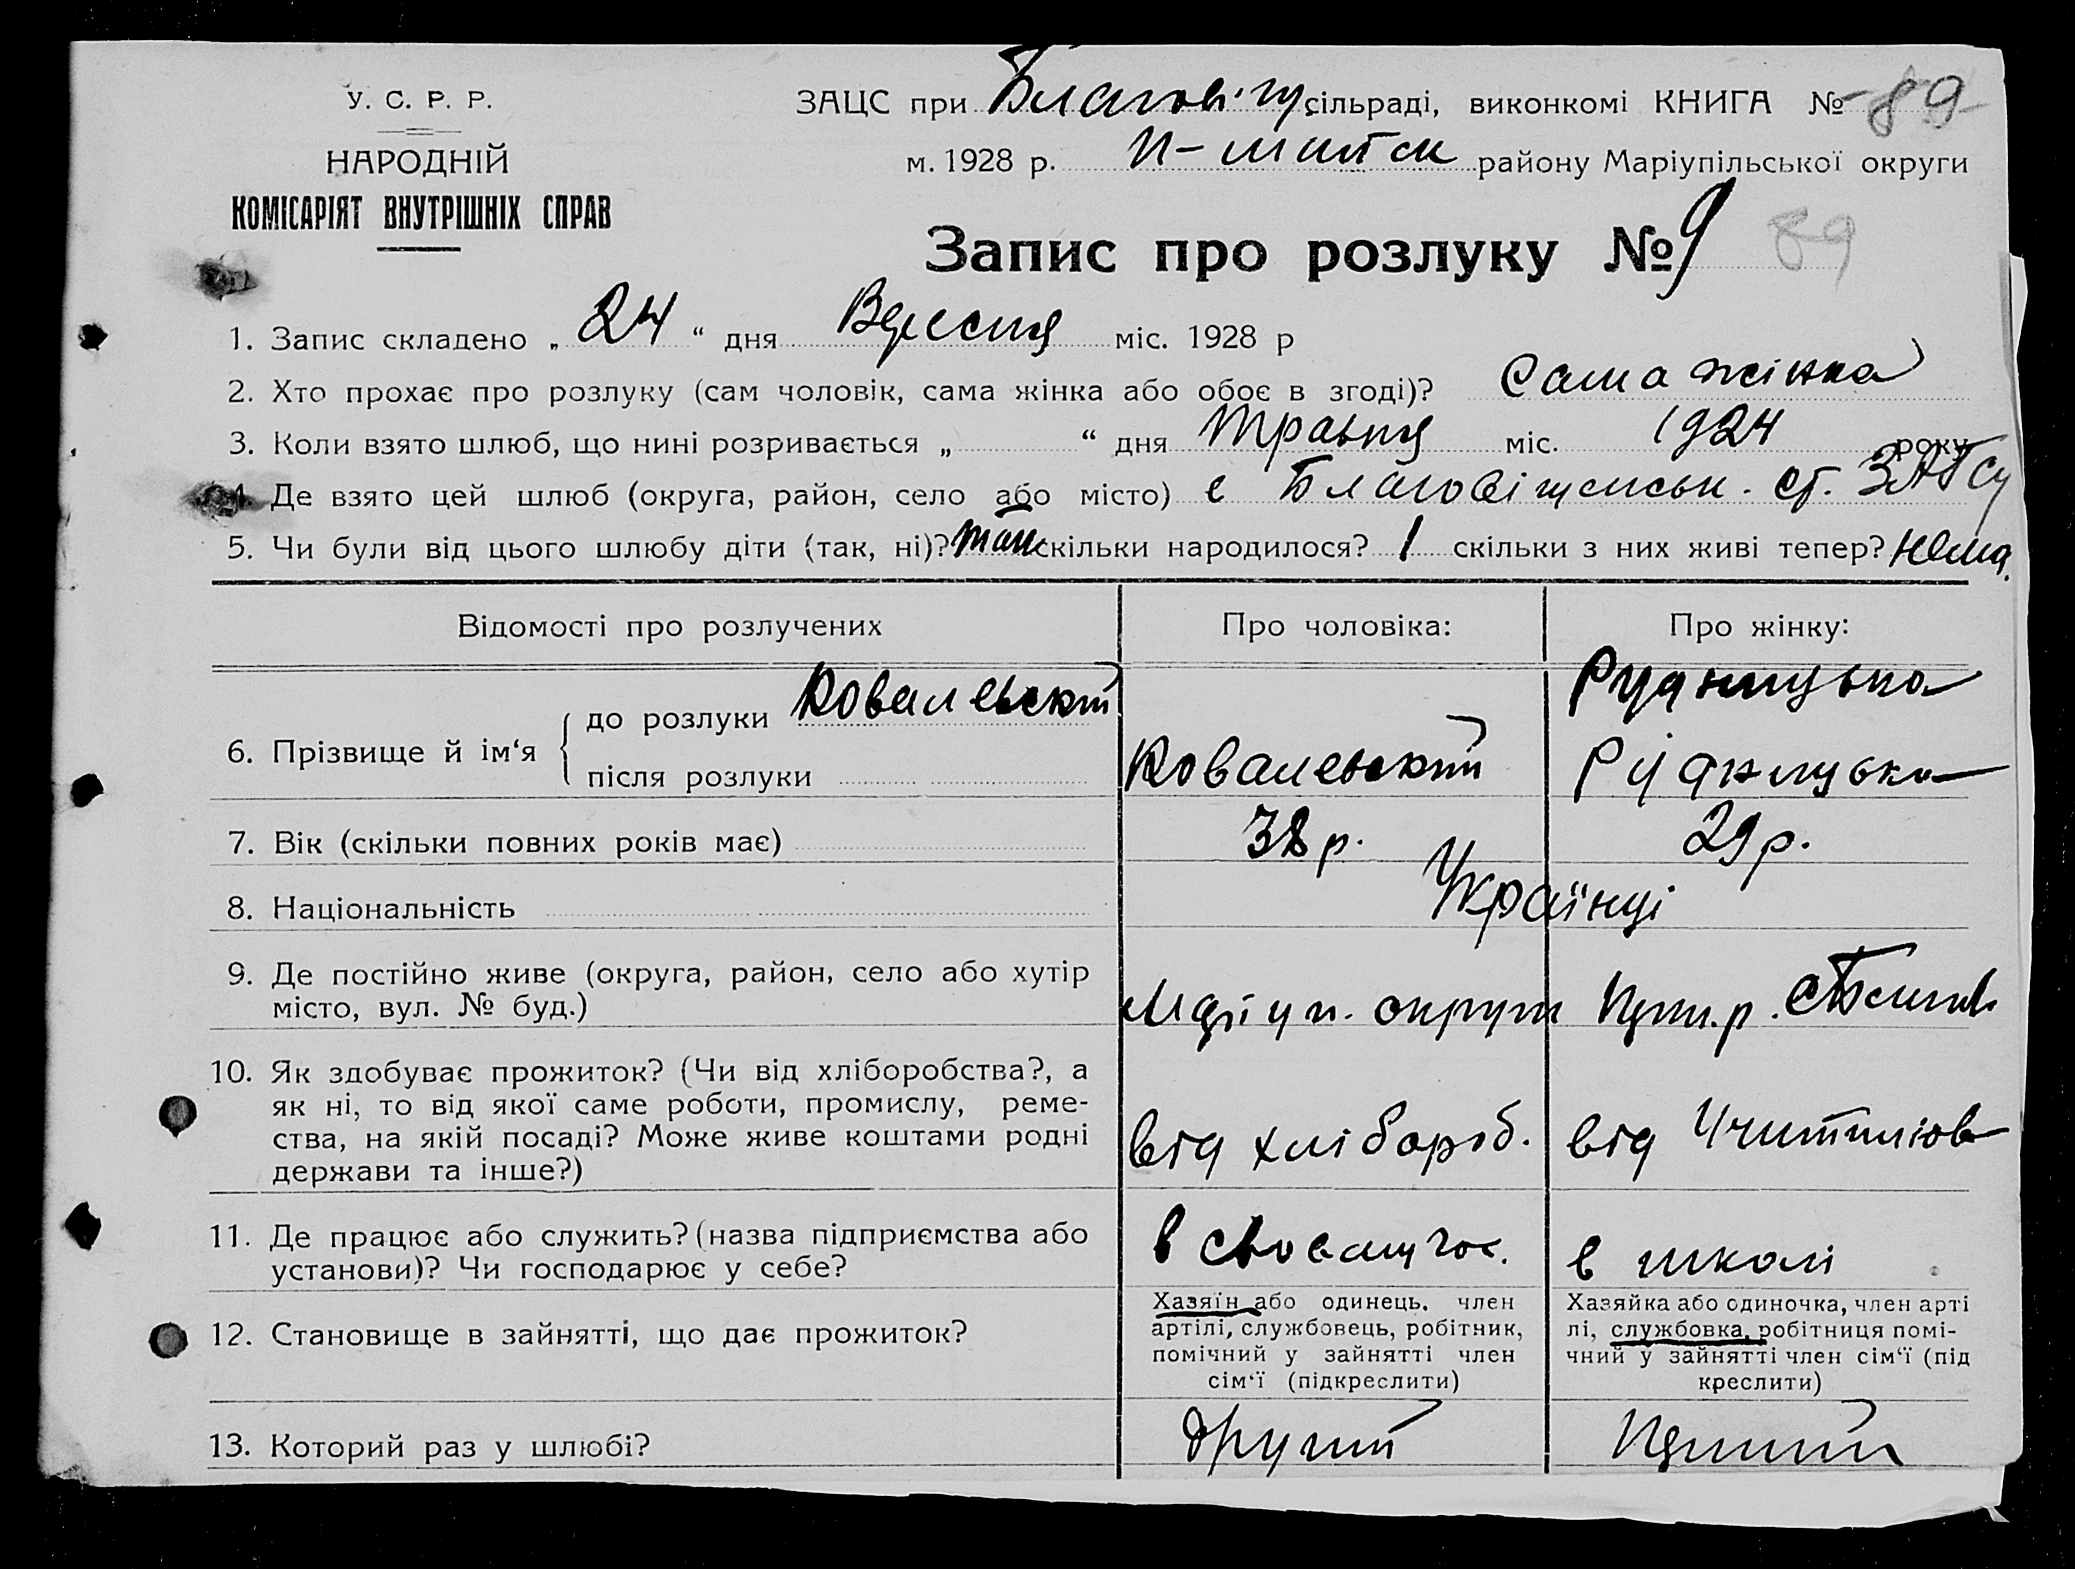 У. С. Р. Р.
НАРОДНІЙ
КОМІСАРІЯТ ВНУТРІШНІХ СПРАВ
ЗАЦС при Благовіщ. сільраді, виконкомі КНИГА № 89
м. 1928 р. району Маріупільської округи
Запис про розлуку № 9 89
1. Запис складено „ 24 “ дня Вересня міс. 1928 р
2. Хто прохає про розлуку (сам чоловік, сама жінка або обоє в згоді)? Сама жінка
3. Коли взято шлюб, що нині розривається „ “ дня Травня міс. 1924 року
4. Де взято цей шлюб (округа, район, село або місто) с Благовіщенськ. ст. ЗАГСу
5. Чи були від цього шлюбу діти (так, ні)? так скільки народилося? 1 скільки з них живі тепер? нема.
Відомості про розлучених Про чоловіка: Про жінку:
6. Прізвище й ім‘я
до розлуки Ковалевский Рудницька
після розлуки Ковалевський Рудницька
7. Вік (скільки повних років має) 38 р. 29 р.
8. Національність Українці
9. Де постійно живе (округа, район, село або хутір
місто, вул. № буд.) Маріуп. округи
10. Як здобуває прожиток? (Чи від хліборобства?, а
як ні, то від якої саме роботи, промислу, реме-
ства, на якій посаді? Може живе коштами родні
держави та інше?) від хлібороб. від
11. Де працює або служить? (назва підприємства або
установи)? Чи господарює у себе? в своєму гос. в школі
12. Становище в зайнятті, що дає прожиток?
Хазяїн або одинець, член
артілі, службовець, робітник,
помічний у зайнятті член
сім‘ї (підкреслити)
Хазяйка або одиночка, член арті
лі, службовка, робітниця помі-
чний у зайнятті член сім‘ї (під
креслити)
13. Которий раз у шлюбі? другий Перший